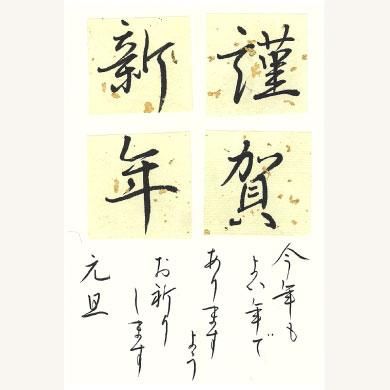 謹賀
新年
今年も
よい年で
あります
よう
お祈り
します
元旦